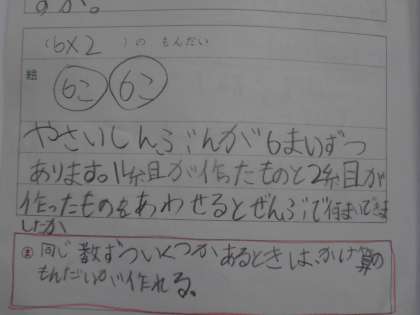 すか。
(6×2)の もんだい
絵
6こ 6こ
やさいしんぶんが6まいずつ
あります。1組目が作ったものと2組目が
作ったものをあわせるとぜんぶで何まいできま
したか
ま 同じ数ずついくつかあるときは、かけ算の
もんだいが作れる。